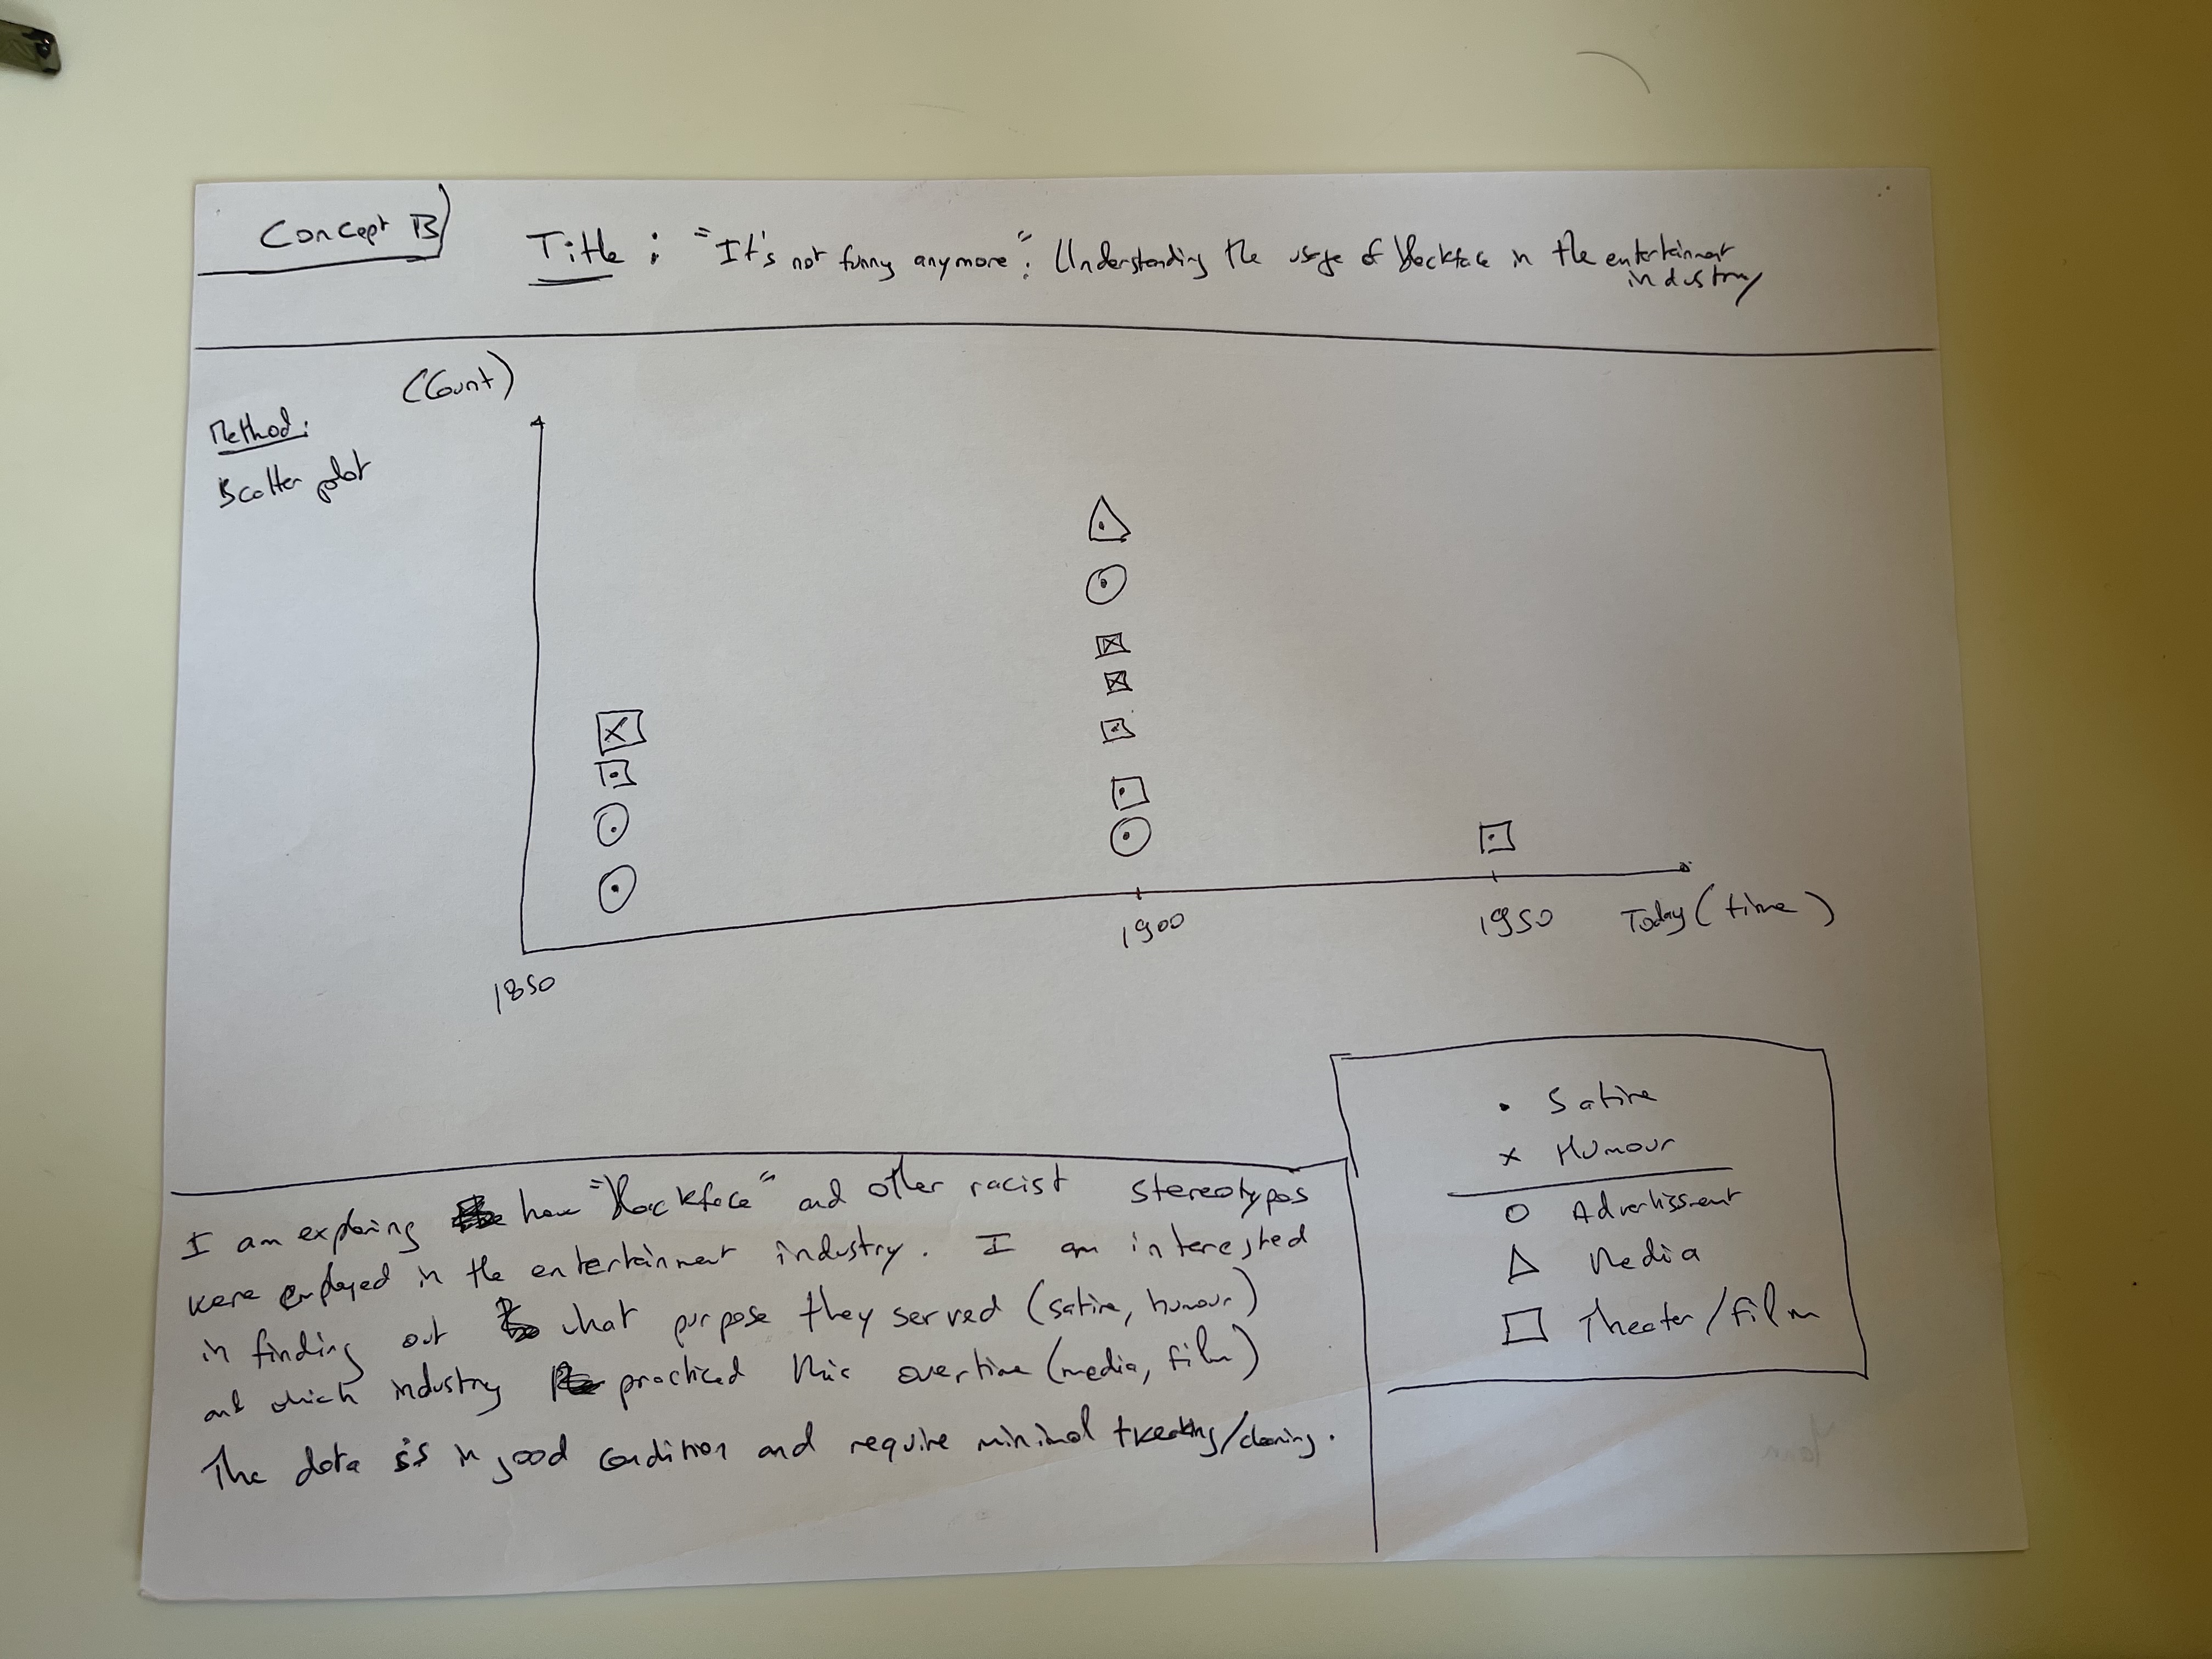 Concept B
Title : "It's not funny anymore": Understanding the usage of blackface in the entertainment
industry
(Count)
Method:
Scatter plot
1850
1900
1950
Today (time)
• Satire
x Humour
O Advertissment
△ Media
□ Theater/Film
I am exploring how "blackface" and other racist stereotypes
were employed in the entertainment industry. I am interested
in finding out what purpose they served (satire, humour)
and which industry practiced this overtime (media, film)
The data is in good condition and require minimal tweaking/cleaning.